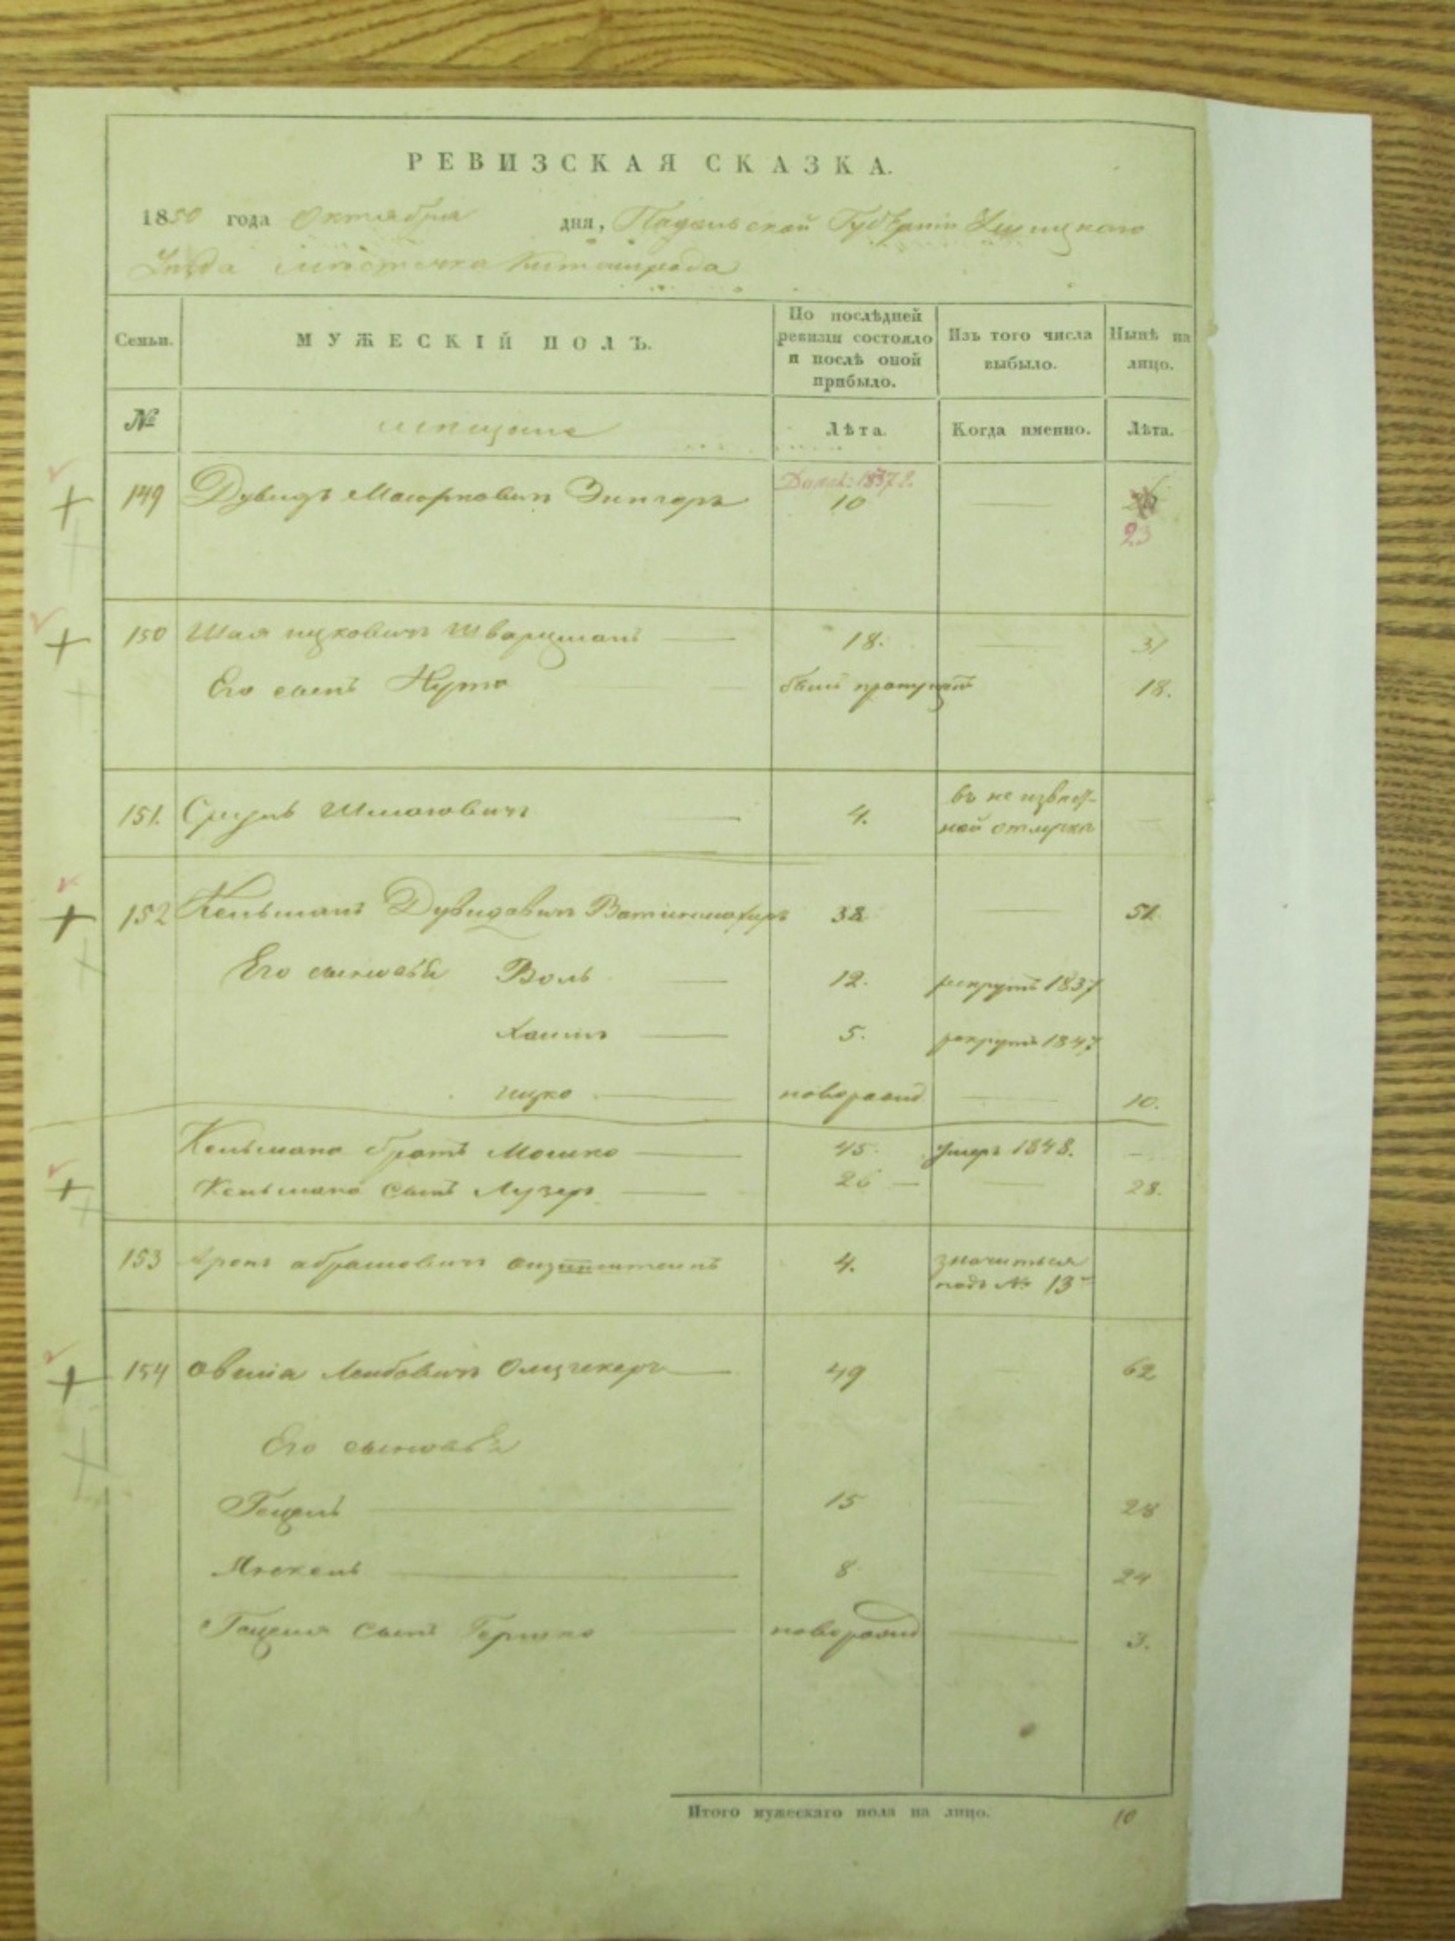 РЕВИЗСКАЯ СКАЗКА.
1850 года Октября дня, Подольской Губерніи Ушицкаго
Уезда местечка Китайгорода
Семьи. МУЖЕСКІЙ ПОЛЪ. По послѣдней ревизіи состояло и послѣ оной прибыло. Изъ того числа выбыло. Ныне на лицо.
№ мещане Лѣта. Когда именно. Лѣта.
149 Дувидъ Маиоровичъ Зингеръ 10
23
150 Шая ицковичъ Шварцманъ 18. 31
Его сынъ Нута былъ 18.
151. Сруль Шмаювичъ 4. въ не извест-
ной отлучке
152 Кельманъ Дувидовичъ 38 51
Его сыновья Воль 12. рекрутъ 1837
Хаимъ 5. рекрутъ 1847
ицко поворожд 10.
Кельмана братъ Мошко 45. умеръ 1848.
Кельмана сынъ Лузеръ 26 28.
153 Аронъ абрамовичъ 4. значиться
подъ № 13
154 овшіа Лейбовичъ 49 62
Его сыновья
Гецель 15 28
Янкель 8 24
Гецеля сынъ Гершко новорожд 3.
Итого мужескаго пола на лицо. 10